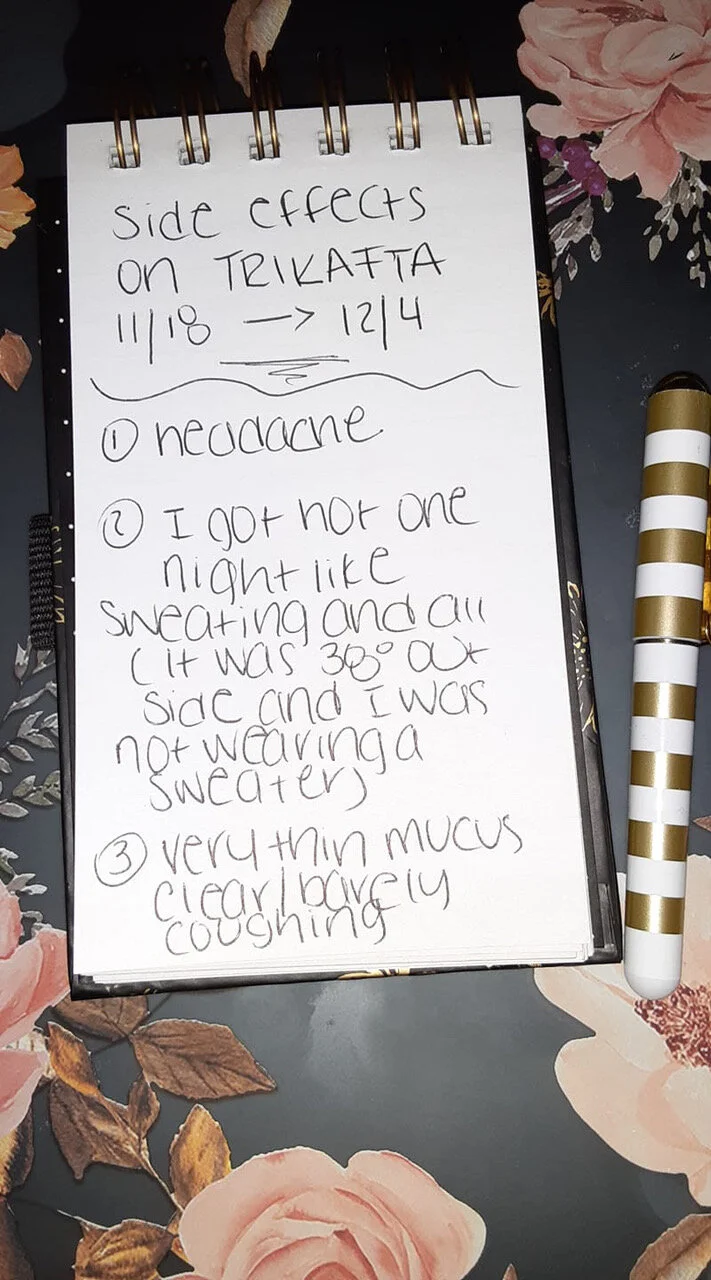 Side effects
on TRIKAFTA
11/18 → 12/4
① headache
② I got hot one
night like
sweating and all
(it was 38° out
side and I was
not wearing a
sweater)
③ very thin mucus
clear/barely
coughing